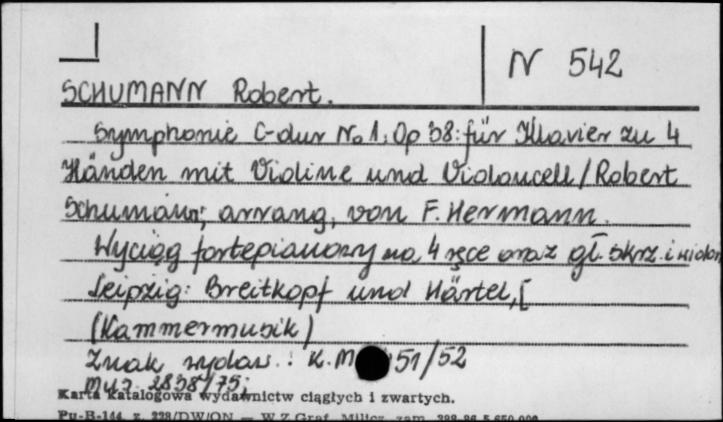 N 542
SCHUMANN Robert.
Symphonie C-dur No 1, Op 38: für Klavier zu 4
Händen mit Violine und Violoncell / Robert
Schumann; arrang, von F. Hermann.
Wyciąg fortepianowy na 4 ręce oraz gł. skrz. i wiolon
Leipzig: Breitkopf und Härtel, [
(Kammermusik)
Znak wydaw.: K.M 51/52
Muz. 2838/75;
Karta katalogowa wydawnictw ciągłych i zwartych.
Pu-B-144 z. 228/DW/ON — W.Z.Graf. Milicz zam.